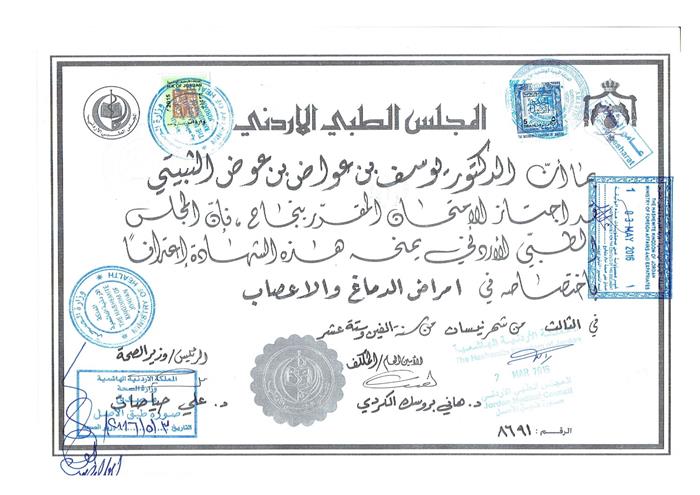 المجلس الطبي الاردني
بما ان الدكتور يوسف بن عواض بن عوض الثبيتي
قد اجتاز الامتحان المقرر بنجاح، فإن المجلس
الطبي الأردني يمنحه هذه الشهادة إعترافاً
باختصاصه في امراض الدماغ والاعصاب
في الثالث من شهر نيسان من سنة الفين وستة عشر
الرئيس / وزير الصحة
الأمين العام / المكلف
د. علي حياصات
د. هاني بروسك الكردي
الرقم: ٨٦٩١
THE HASHEMITE KINGDOM OF JORDAN
MINISTRY OF FOREIGN AFFAIRS AND EXPATRIATES
03 MAY 2016
MINISTRY OF HEALTH
وزارة الصحة
المملكة الاردنية الهاشمية
وزارة الصحة
صورة طبق الأصل
التاريخ ٢٠١٦/٥/٣
المملكة الأردنية الهاشمية
The Hashemite Kingdom of Jordan
MAR 2016
المجلس الطبي الأردني
Jordan Medical Council